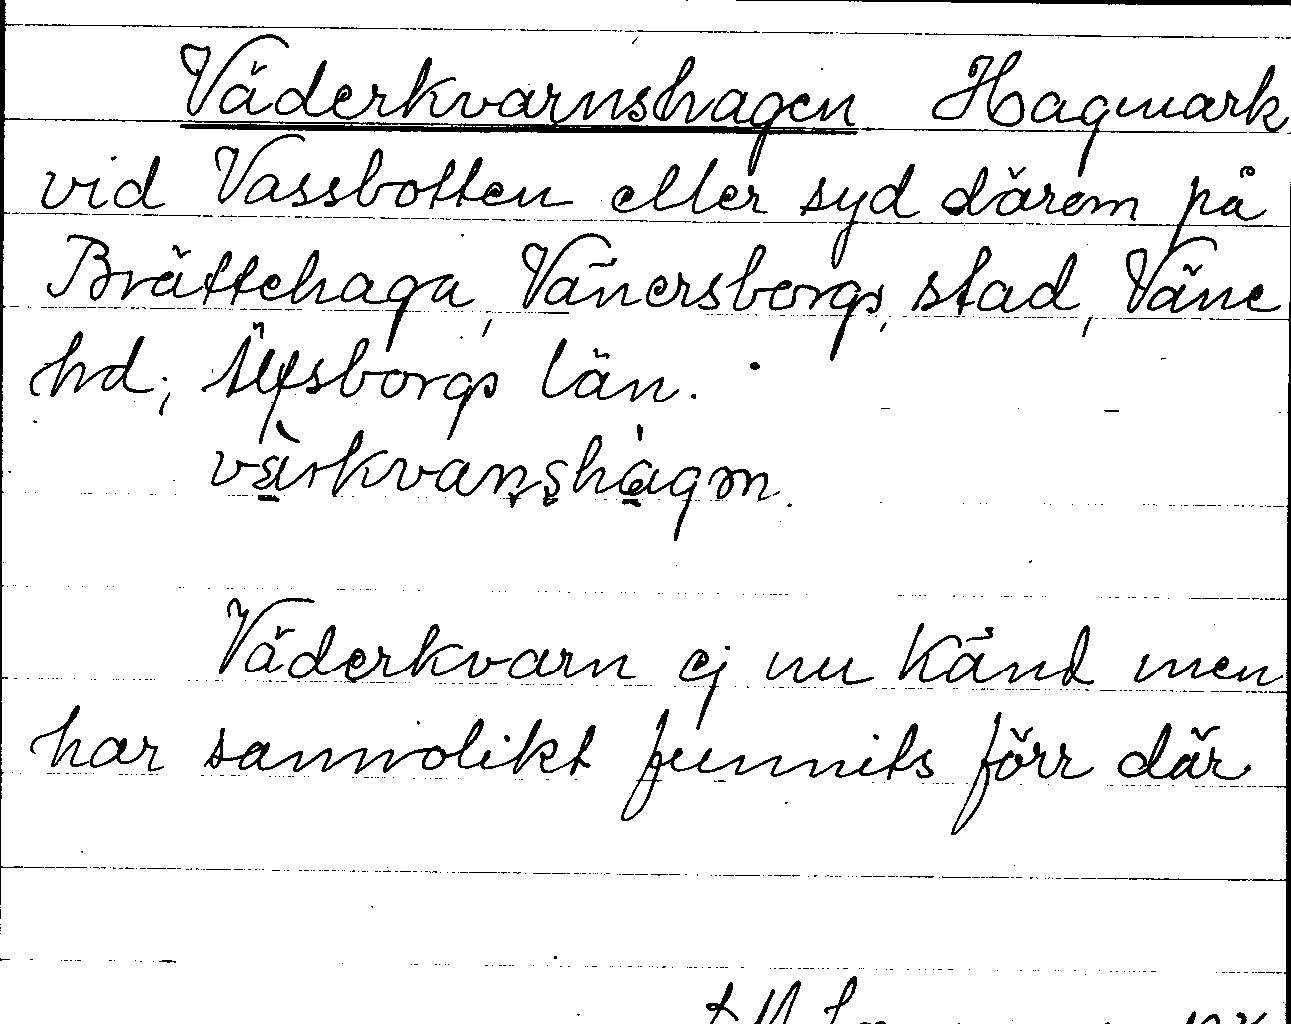 Väderkvarnshagen Hagmark
vid Vassbotten eller syd därom på
Brättehaga, Vänersborgs stad, Väne
hd, Älfsborgs län.
Väderkvarn ej nu känd men
har sannolikt funnits förr där